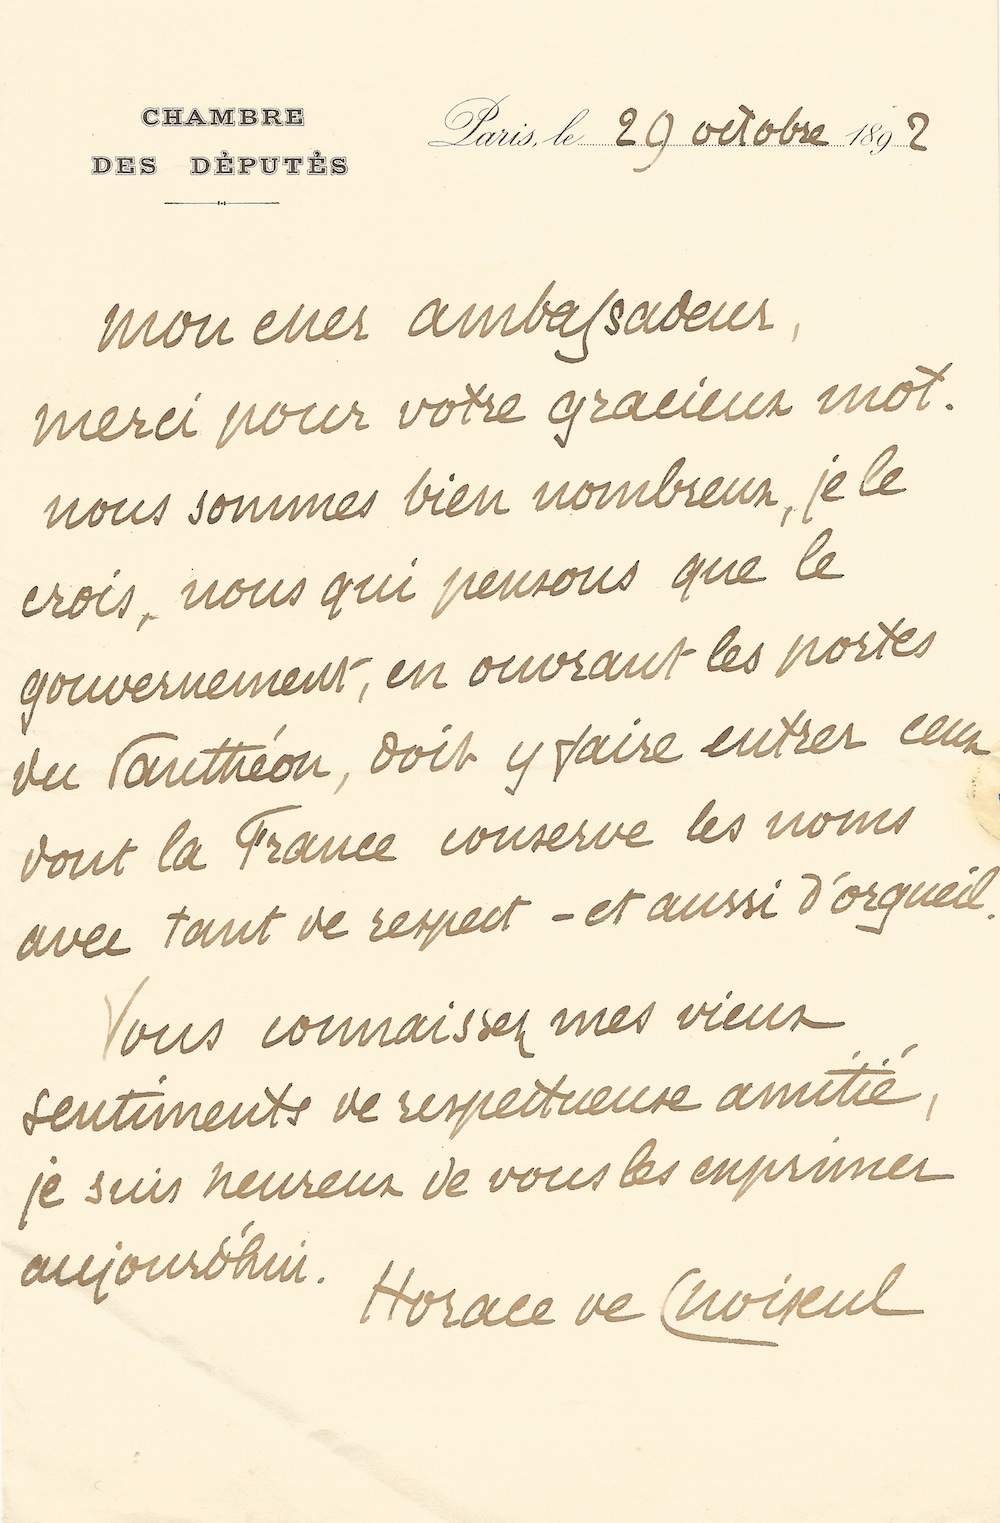 CHAMBRE
DES DÉPUTÉS
Paris, le 29 octobre 1892
mon cher ambassadeur,
merci pour votre gracieux mot.
nous sommes bien nombreux, je le
crois, nous qui pensons que le
gouvernement, en ouvrant les portes
du Panthéon, doit y faire entrer ceux
dont la France conserve les noms
avec tant de respect – et aussi d'orgueil.
Vous connaissez mes vieux
sentiments de respectueuse amitié,
je suis heureux de vous les exprimer
aujourd'hui.
Horace de Choiseul